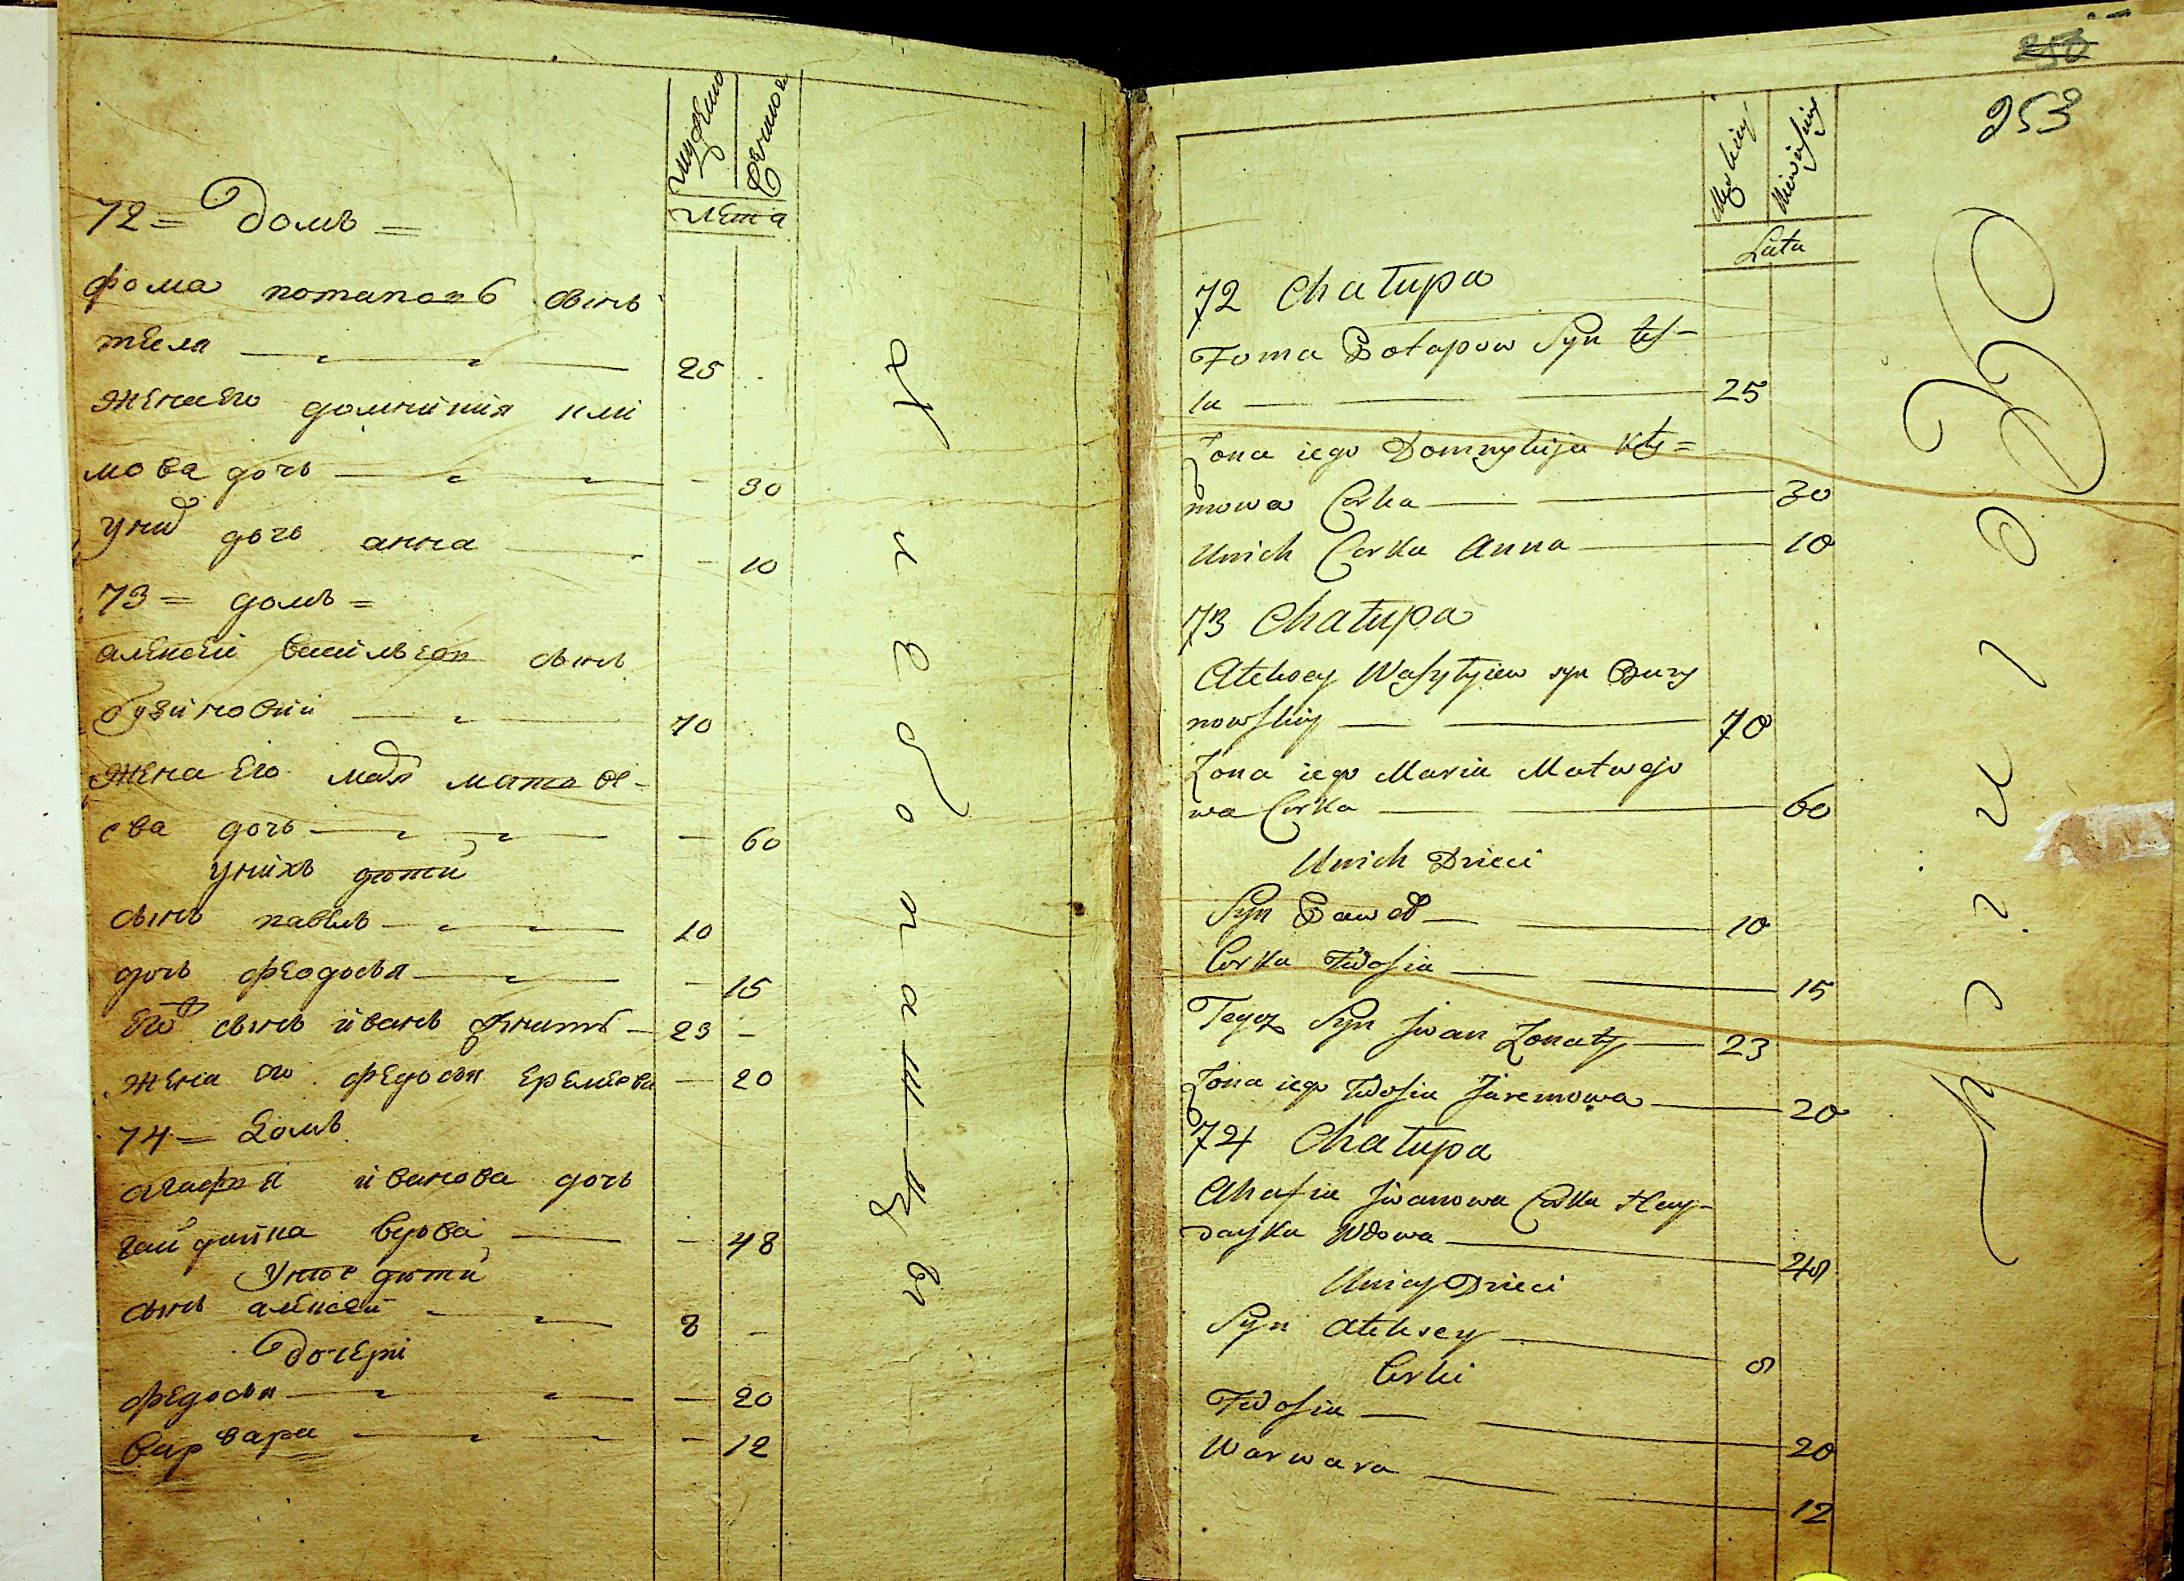 мужеска
женска
лѣта
72 = Домъ =
фома потаповъ сынъ
тѣсля 25
жена его домникия кли
мова дочь - 30
у них дочь анна - 10
73 = домъ =
алексей васильевъ сынъ
бузиновкий 70
жена его марья матвѣ-
ева дочь - 60
у нихъ дѣти
сынъ павелъ 10
дочь феодосья - 15
его сынъ иванъ женатъ - 23 -
жена его федосья еремеева - 20
74 = Домъ
агафья иванова дочь
гайдайка вдова - 48
у нее дѣти
сынъ алексей 8 -
Дочери
федосья - 20
варвара - 12
253
Męskiey
Niewieskiey
Lata
72 Chałupa
Foma Potapow Syn tes-
la 25
Żona iego Domnykija Kły=
mowa Corka 30
U nich Corka Anna 10
73 Chałupa
Ałeksey Wasyłyiew syn Buzy
nowskiy 70
Żona iego Maria Matwejo
wa Corka 60
U nich Dzieci
Syn Paweł 10
Corka Fedosia 15
Tegoz Syn Jwan Żonaty 23
Żona iego Fedosia Jaremowa 20
74 Chałupa
Ahafia Jwanowa Corka Hay-
dayka Wdowa 48
U niey Dzieci
Syn Ałeksey 8
Corki
Fedosia 20
Warwara 12